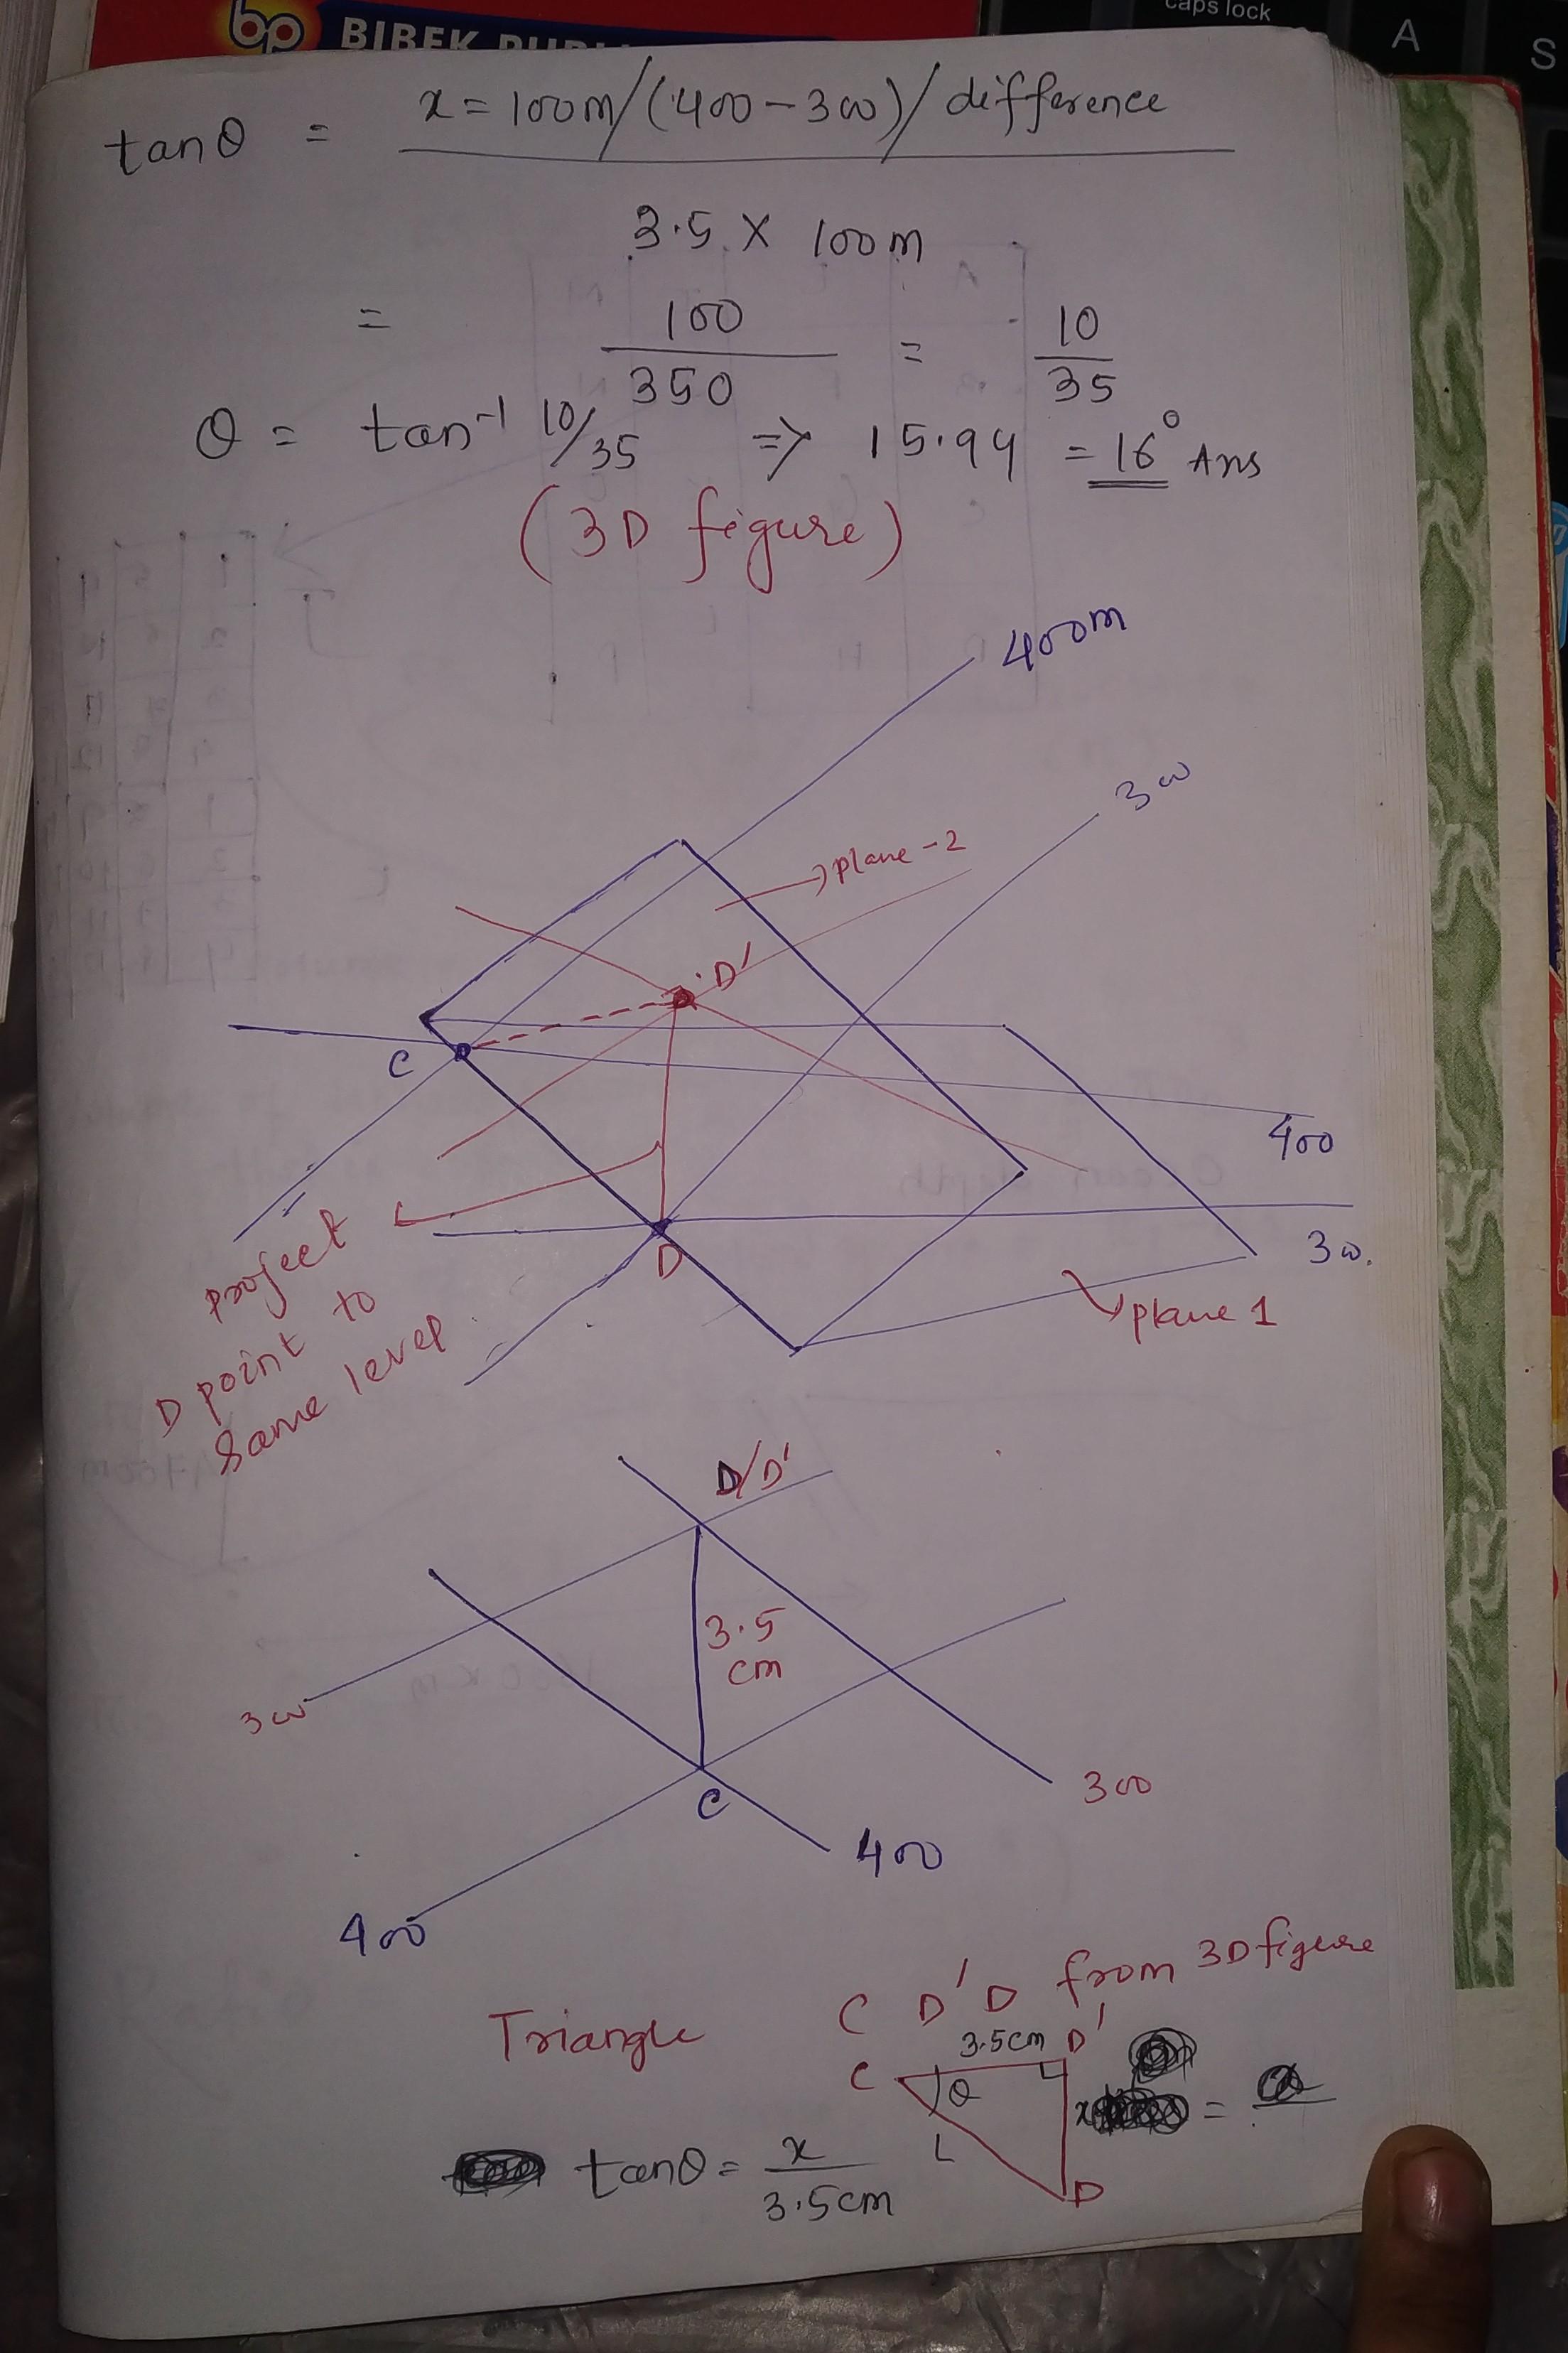 caps lock
A
S
bp BIBEK
tanθ = x = 100m/(400-300)/difference
3.5 X 100m
= 100/350 = 10/35
θ = tan⁻¹ 10/35 => 15.94 = 16° Ans
(3D figure)
400m
300
plane-2
D'
C
400
300.
D
plane 1
project
D point to
same level
D/D'
3.5
cm
300
300
C
400
400
Triangle C D'D from 3D figure
3.5cm D'
C θ x =
L
tanθ = x/3.5cm
D